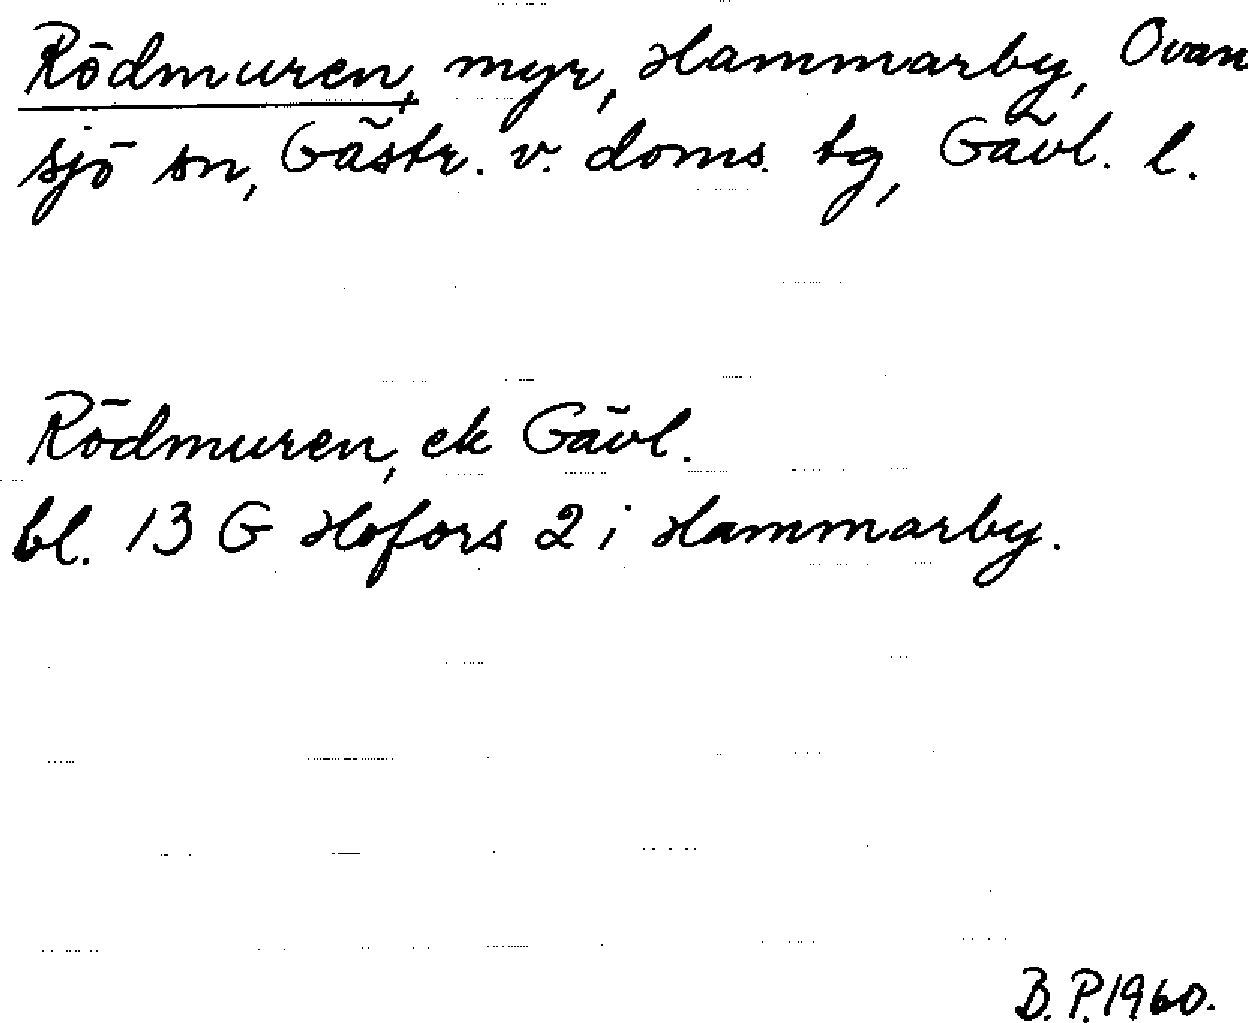 Rödmuren, myr, Hammarby, Ovan
sjö sn, Gästr. v. doms. tg, Gävl. l.
Rödmuren, ek Gävl.
bl. 13 G Hofors 2 i Hammarby.
B. P. 1960.